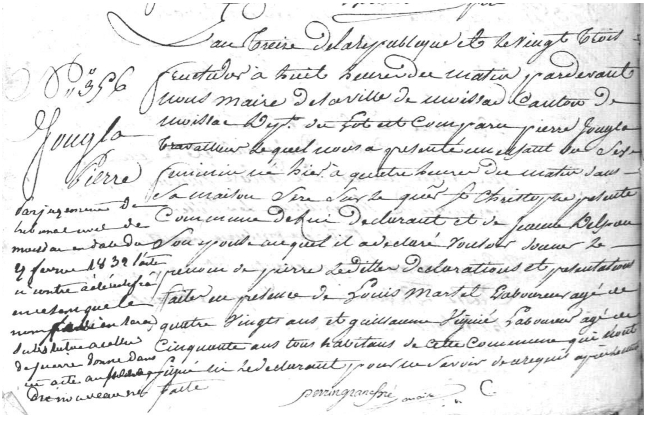 L'an treize de la republique et le vingt trois
fructidor à huit heures du matin, pardevant
nous maire de la ville de moissac Canton de
moissac Dept. du Lot est comparu pierre Jougla
travailleur lequel nous a presenté un enfant du Sexe
feminin né hier à quatre heures du matin dans
Sa maison Sise sur le St Christophe presente
Commune de lui declarant et de Jeanne Delpau
Son epouse auquel il a declaré vouloir donner le
prenom de pierre Lesdittes declarations et presentations
faites en presence de Louis Martel Laboureur agé de
quatre vingts ans et guillaume Viguié Laboureur agé de
Cinquante ans tous habitans de cette Commune qui n'ont
Signé ni le declarant, pour ne savoir de ce requis après lecture
faite
maire
N° 356
Jougla
Pierre
par jugement de
tribunal civil de
moissac en date du
fevrier 1832 l'acte
ci contre a été rectifié
en ce sens que le
nom
Substitué à celui
de pierre donné dans